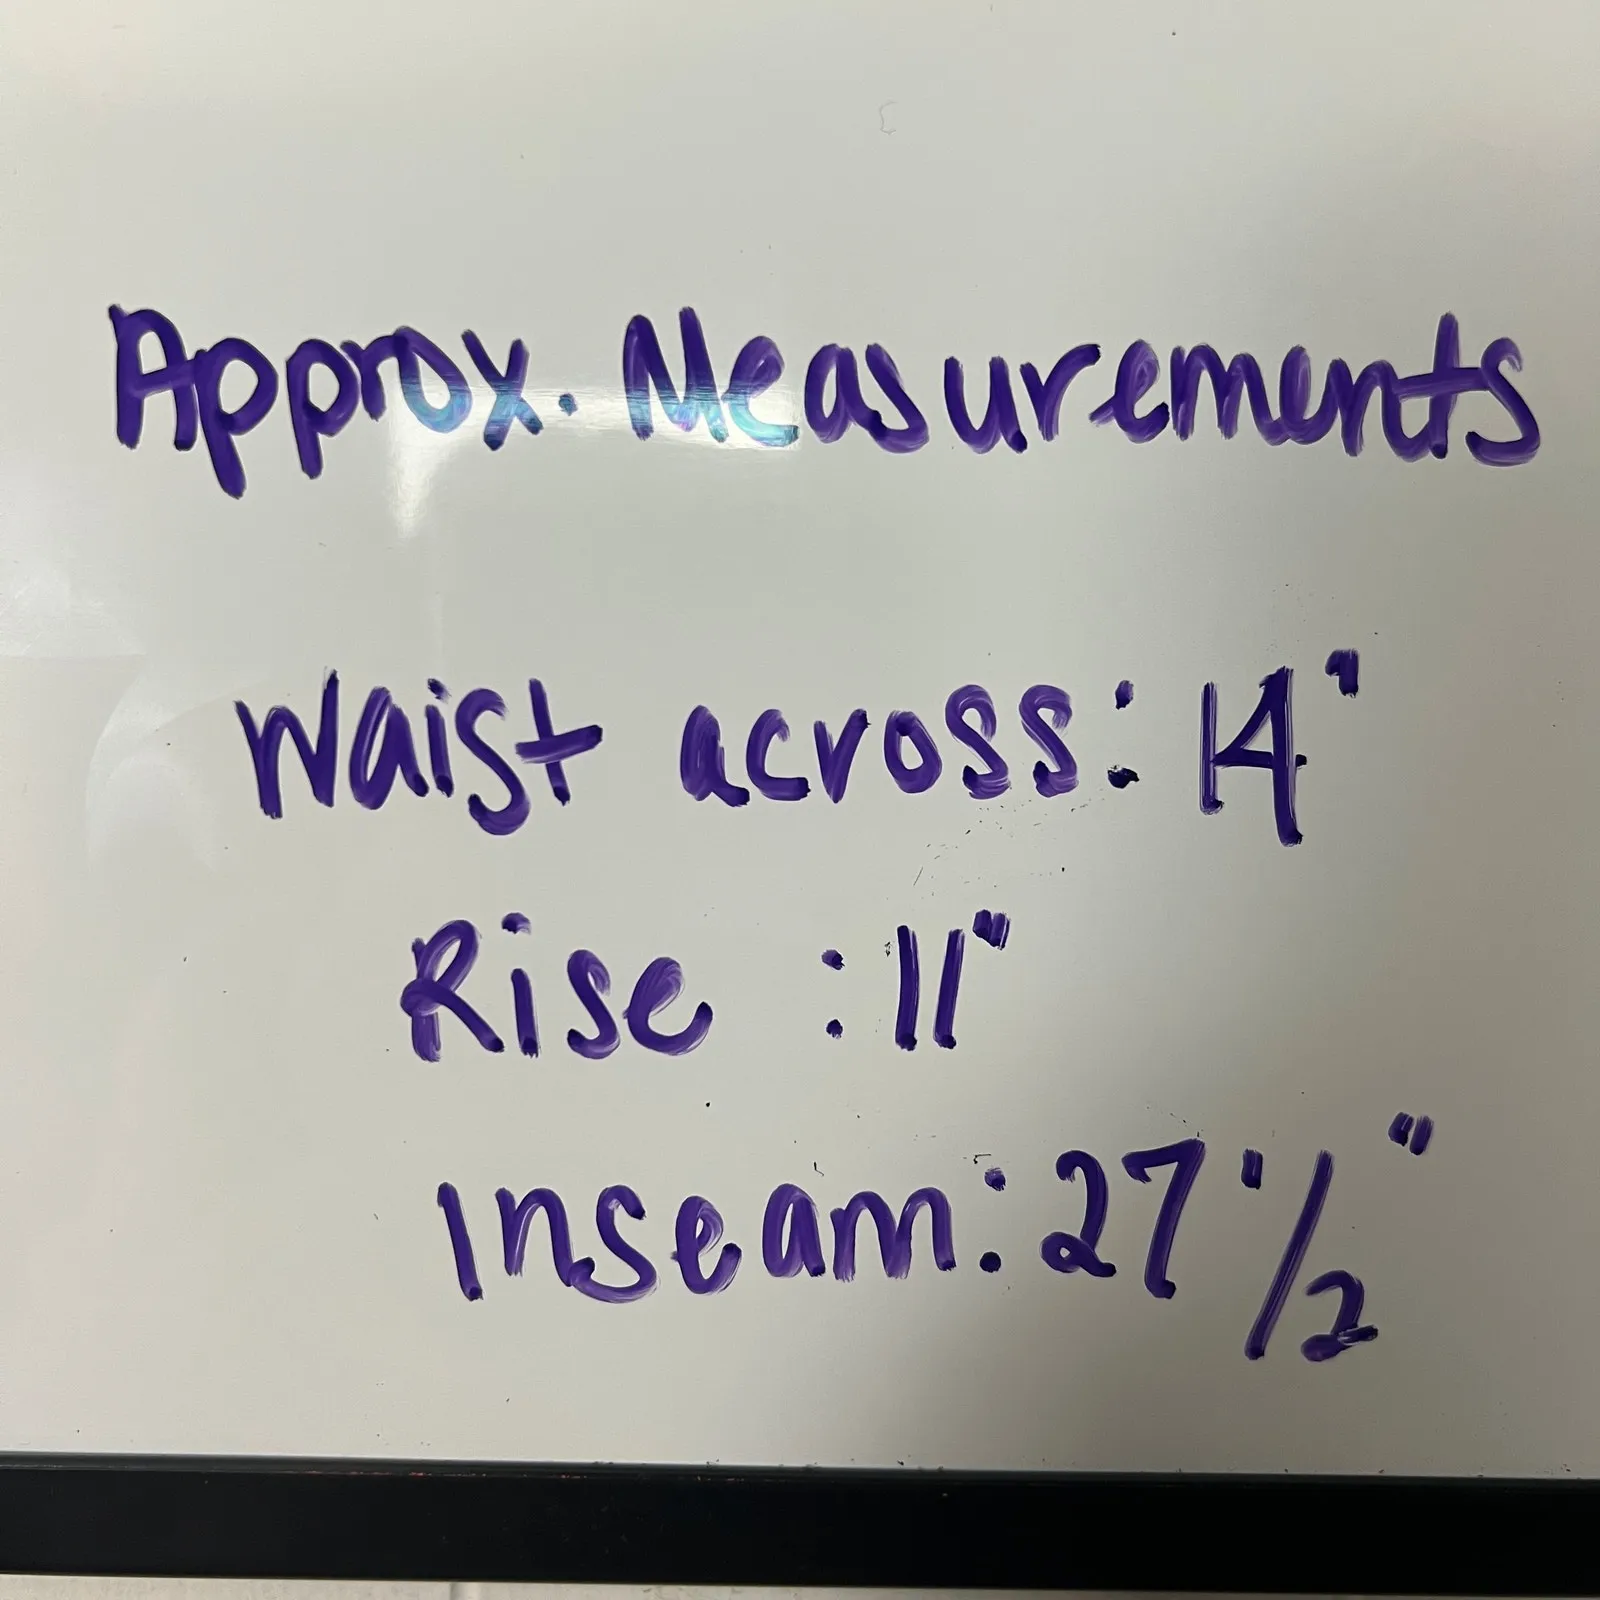 Approx. Measurements
Waist across: 14"
Rise : 11"
Inseam: 27 1/2"